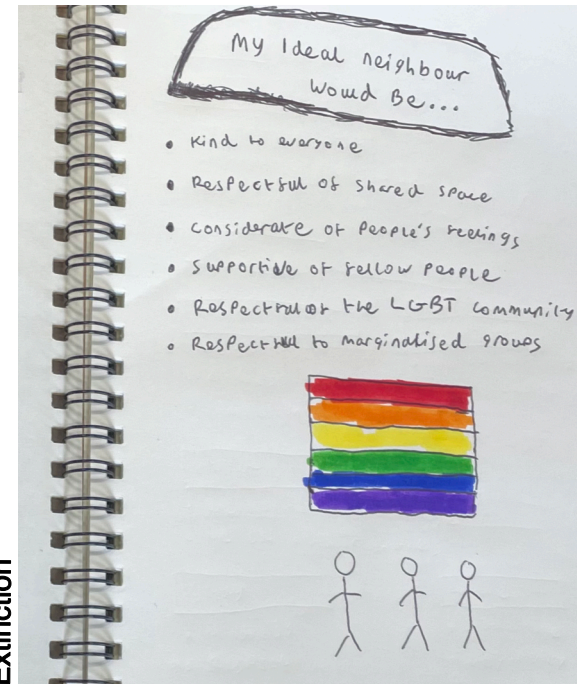 My Ideal neighbour
Would Be...
• Kind to everyone
• Respectful of shared space
• Considerate of People's feelings
• Supportive of fellow people
• Respectful of the LGBT Community
• Respectful to marginalised groups
Extinction